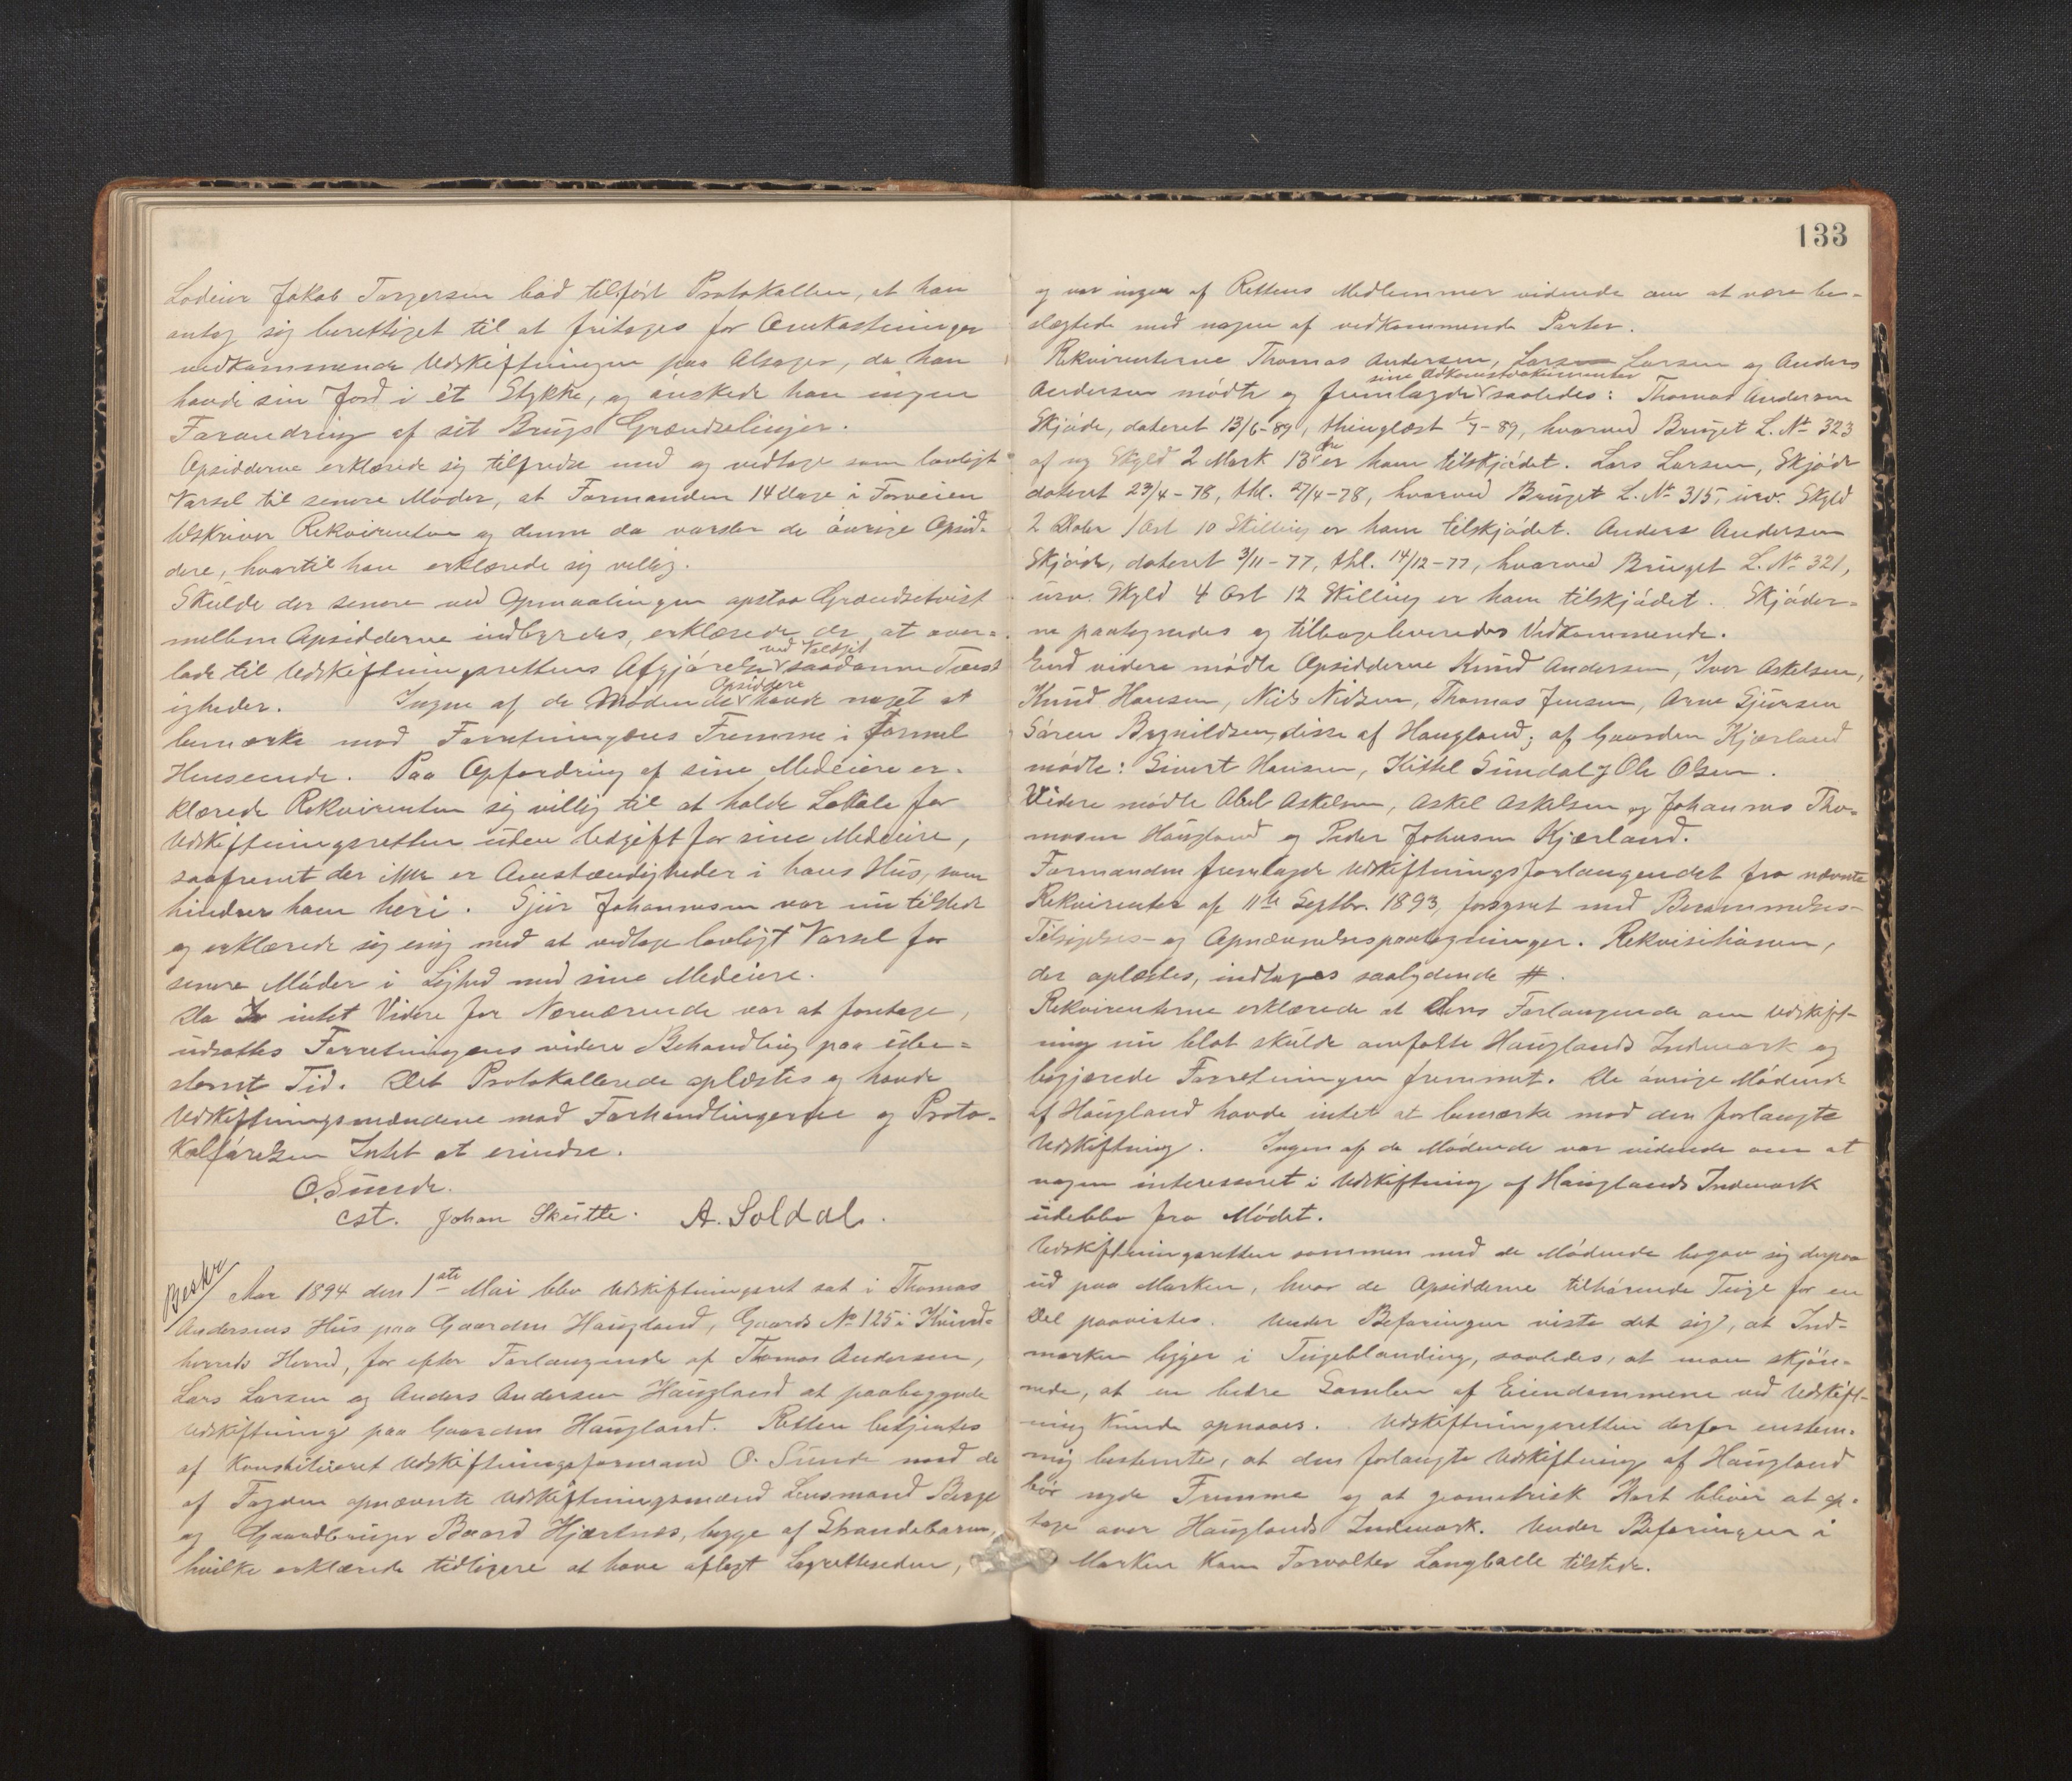 Lodeier Jakob Torgersen bad tilført Protokollen, at han
antog sig berettiget til at fritages for Omkostninger
vedkommende Udskiftningen paa Alsager, da han
havde sin Jord i ét Stykke, og ønskede han ingen
Forandring af sit Brugs Grændselinjer.
Opsidderne erklærede sig tilfredse med og vedtage som lovligt
Varsel til senere Møder, at Formanden 14 Dage i Forveien
tilskriver Rekvirenten og denne da varsler de øvrige Opsid-
dere, hvortil han erklærede sig villig.
Skulde der senere ved Opmaalingen opstaa Grændsetvist
mellem Opsidderne indbyrdes, erklærede de, at over-
lade til Udskiftningsrettens Afgjørelse ved Voldgift saadanne Tvist
igheder. Ingen af de Mødende Opsiddere havde noget at
bemærke mod Forretningens Fremme i formel
Henseende. Paa Opfordring af sine Medeiere er-
klærede Rekvirenten sig villig til at holde Lokale for
Udskiftningsretten uden Udgift for sine Medeiere,
saafremt der ikke er Omstændigheder i hans Hus, som
hindrer ham heri. Sjur Johannesen var nu tilstede
og erklærede sig enig med at vedtage lovligt Varsel for
senere Møder i Lighed med sine Medeiere.
Da intet Videre for Nærværende var at foretage,
udsattes Forretningens videre Behandling paa ube-
stemt Tid. Det Protokollerede oplæstes og havde
Udskiftningsmændene mod Forhandlingerne og Proto-
kolførelsen Intet at erindre.
O. Sunde.
cst. Johan Skutte. A. Soldal.
Beskr
Aar 1894 den 1ste Mai blev Udskiftningsret sat i Thomas
Andersens Hus paa Gaarden Haugland, Gaards No 125 i Kvind-
herreds Herred, for efter Forlangende af Thomas Andersen,
Lars Larsen og Anders Andersen Haugland at paabegynde
Udskiftning paa Gaarden Haugland. Retten betjentes
af Konstitueret Udskiftningsformand O. Sunde med de
af Fogden opnævnte Udskiftningsmænd Lensmand Berge
og Gaardbruger Baard Hjartnes, begge af Strandebarm,
hvilke erklærede tidligere at have aflagt Lagretteseden,
133
og var ingen af Rettens Medlemmer vidende om at være be-
slægtede med nogen af vedkommende Parter.
Rekvirenterne Thomas Andersen, Lars Larsen og Anders
Andersen mødte og fremlagde sine Adkomstdokumenter saaledes: Thomas Andersen
Skjøde, dateret 13/6-89, thinglæst 1/7-89, hvorved Bruget L. No 323
af ny Skyld 2 Mark 13 Øre er ham tilskjødet. Lars Larsen, Skjøde
dateret 23/4-78, thl. 27/4-78, hvorved Bruget L. No 315, urev. Skyld
2 Daler 1 Ort 10 Skilling er ham tilskjødet. Anders Andersen
Skjøde, dateret 3/11-77, thl. 14/12-77, hvorved Bruget L. No 321,
urev. Skyld 4 Ort 12 Skilling er ham tilskjødet. Skjøder-
ne paategnedes og tilbageleveredes Vedkommende.
End videre mødte Opsidderne Knud Andersen, Iver Askelsen,
Knud Hansen, Nils Nilsen, Thomas Jensen, Arne Sjursen
Søren Brynildsen, disse af Haugland; af Gaarden Kjærland
mødte: Sivert Hansen, Kittel Sundal og Ole Olsen.
Videre mødte Abel Askelsen, Askel Askelsen og Johannes Tho-
massen Haugland og Peder Johnsen Kjærland.
Formanden fremlagde Udskiftningsforlangendet fra nævnte
Rekvirenter af 11te Septbr. 1893, forsynet med Berammelses-
Tilsigelses- og Opnævnelsespaategninger. Rekvisitionen,
der oplæstes, indtages saalydende #.
Rekvirenterne erklærede at deres Forlangende om Udskift-
ning nu blot skulde omfatte Hauglands Indmark og
begjærede Forretningen fremmet. De øvrige Mødende
af Haugland havde intet at bemærke mod den forlangte
Udskiftning. Ingen af de Mødende var vidende om at
nogen interesseret i Udskiftning af Hauglands Indmark
udeblev fra Mødet.
Udskiftningsretten sammen med de Mødende begav sig derpaa
ud paa Marken, hvor de Opsidderne tilhørende Teige for en
Del paavistes. Under Befaringen viste det sig, at Ind-
marken ligger i Teigeblanding, saaledes, at man skjøn-
nede, at en bedre Samlen af Eiendommene ved Udskift-
ning kunde opnaaes. Udskiftningsretten derfor enstem-
mig bestemte, at den forlangte Udskiftning af Haugland
bør nyde Fremme og at geometrisk Kart bliver at op-
tage over Hauglands Indmark. Under Befaringen i
Marken kom Forvalter Langballe tilstede.